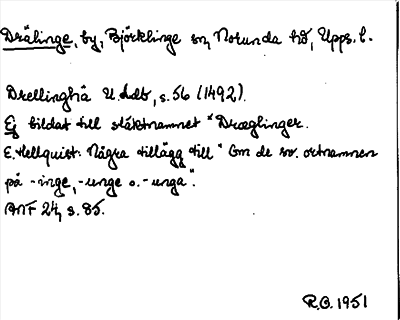 Drälinge, by, Björklinge sn, Norunda hd, Upps. l.
Drellinghä U.Ldb, s. 56 (1492).
Ej bildat till släktnamnet *Dræglinger.
E. Hellquist: Några tillägg till "Om de sv. ortnamnen
på -inge, -unge o. -unga".
ANF 24, s. 85.
R.O. 1951